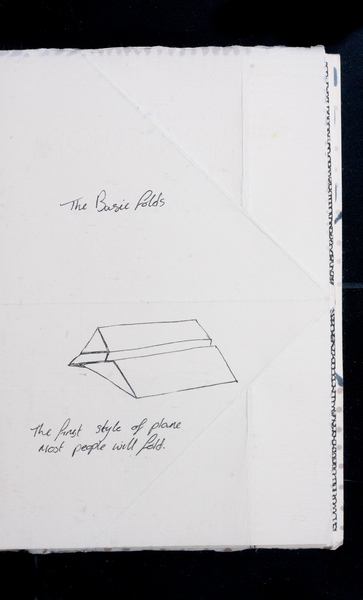 The Basic folds
The first style of plane
most people will fold.